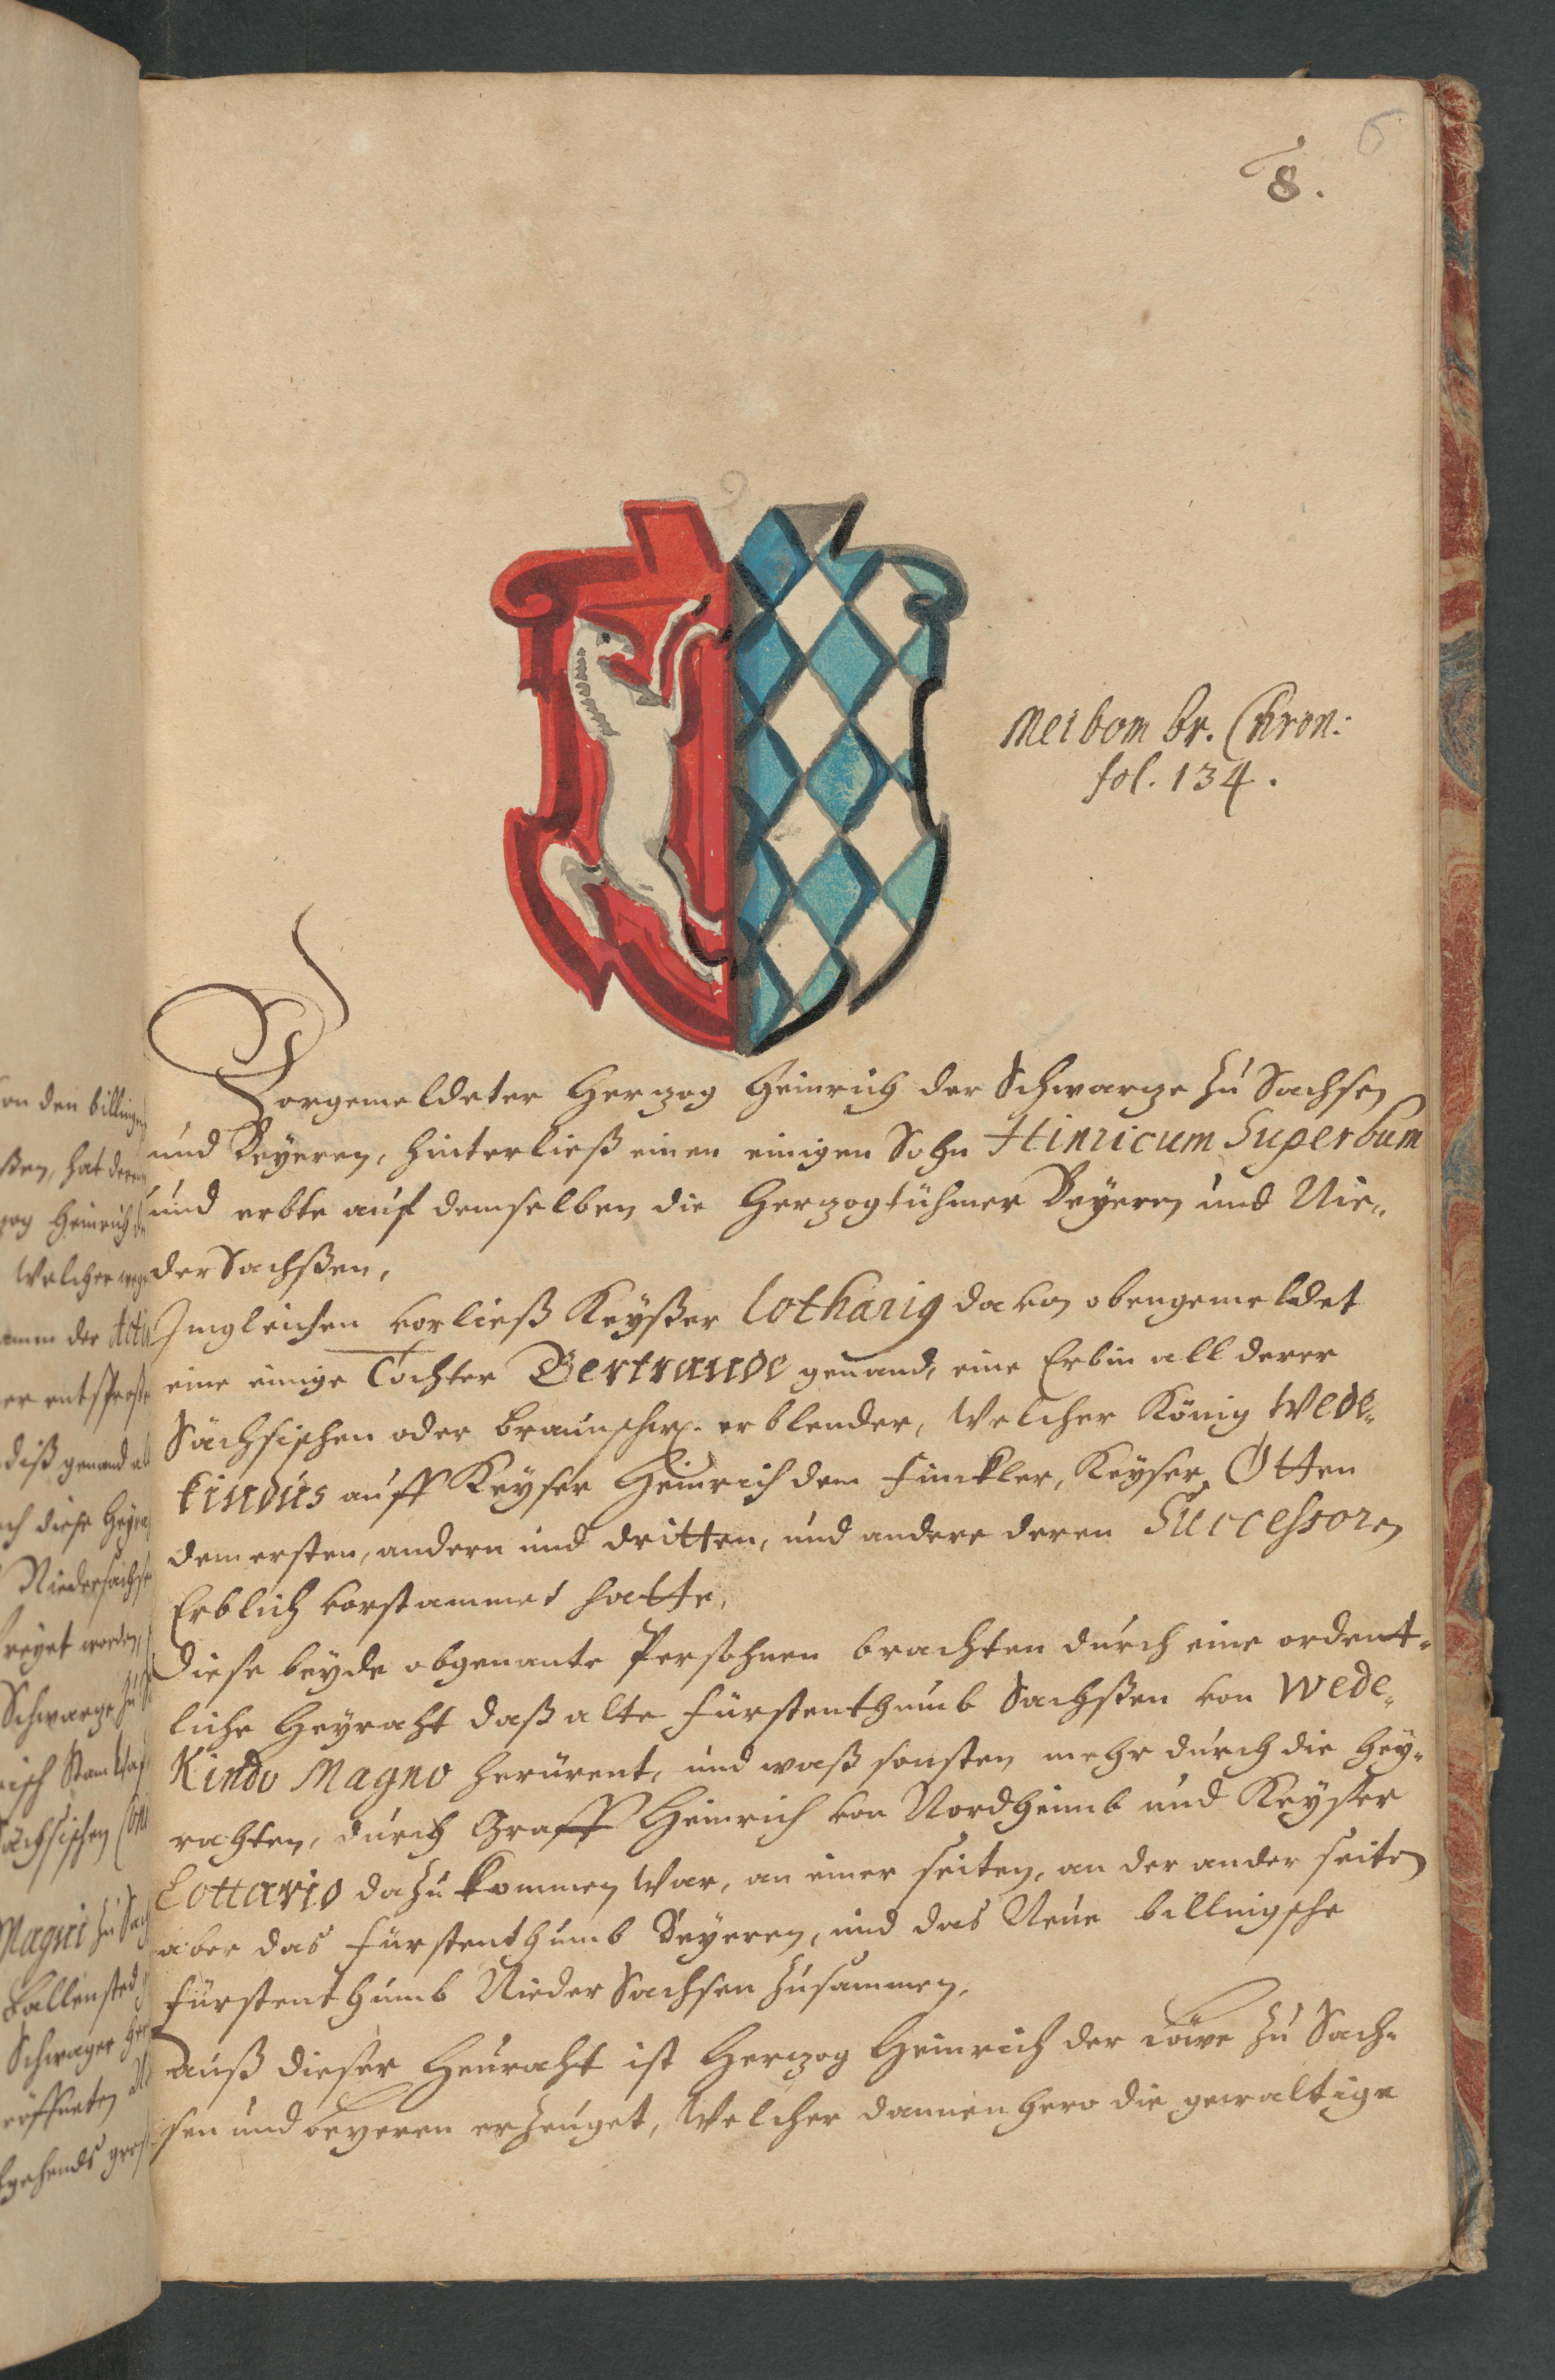 6
8.
Meibom br. Chron:
fol. 134.
Vorgemeldeter Herzog Heinrich der Schwarze zu Sachsen
und Beyeren, hinterließ einen einigen Sohn Hinricum Superbum
und erbte auf demselben die Herzogtühmer Beyeren und Nie„
der Sachßen,
Jmgleichen vorließ Keyßer Lothariq davon obengemeldet
eine einige Tochter Bertraude genand, eine Erbin all derer
Sächsischen oder braunschw. erblender, Welcher König Wede„
kindus auff Keyser Heinrich dem Finckler, Keyser Otten
dem ersten, andern und dritten, und andere deren Successoren
Erblich vorstammet hatte,
Diese beyde obgenante Persohnen brachten durch eine ordent„
liche Heyraht daß alte Fürstenthumb Sachßen von Wede„
Kindo Magno herürent, und waß sonsten mehr durch die Hey„
rahten, durch Graff Heinrich von Nordheimb und Keyser
Lottario dazu kommen War, an einer seiten, an der ander seiten
aber das Fürstenthumb Beyeren, und das Neue billingsche
Fürstenthumb Nieder Sachsen zusammen,
Auß dieser Heuraht ist Herzog Heinrich der Löwe zu Sach„
sen und Beyeren erzeuget, Welcher dannenhero die gewaltige